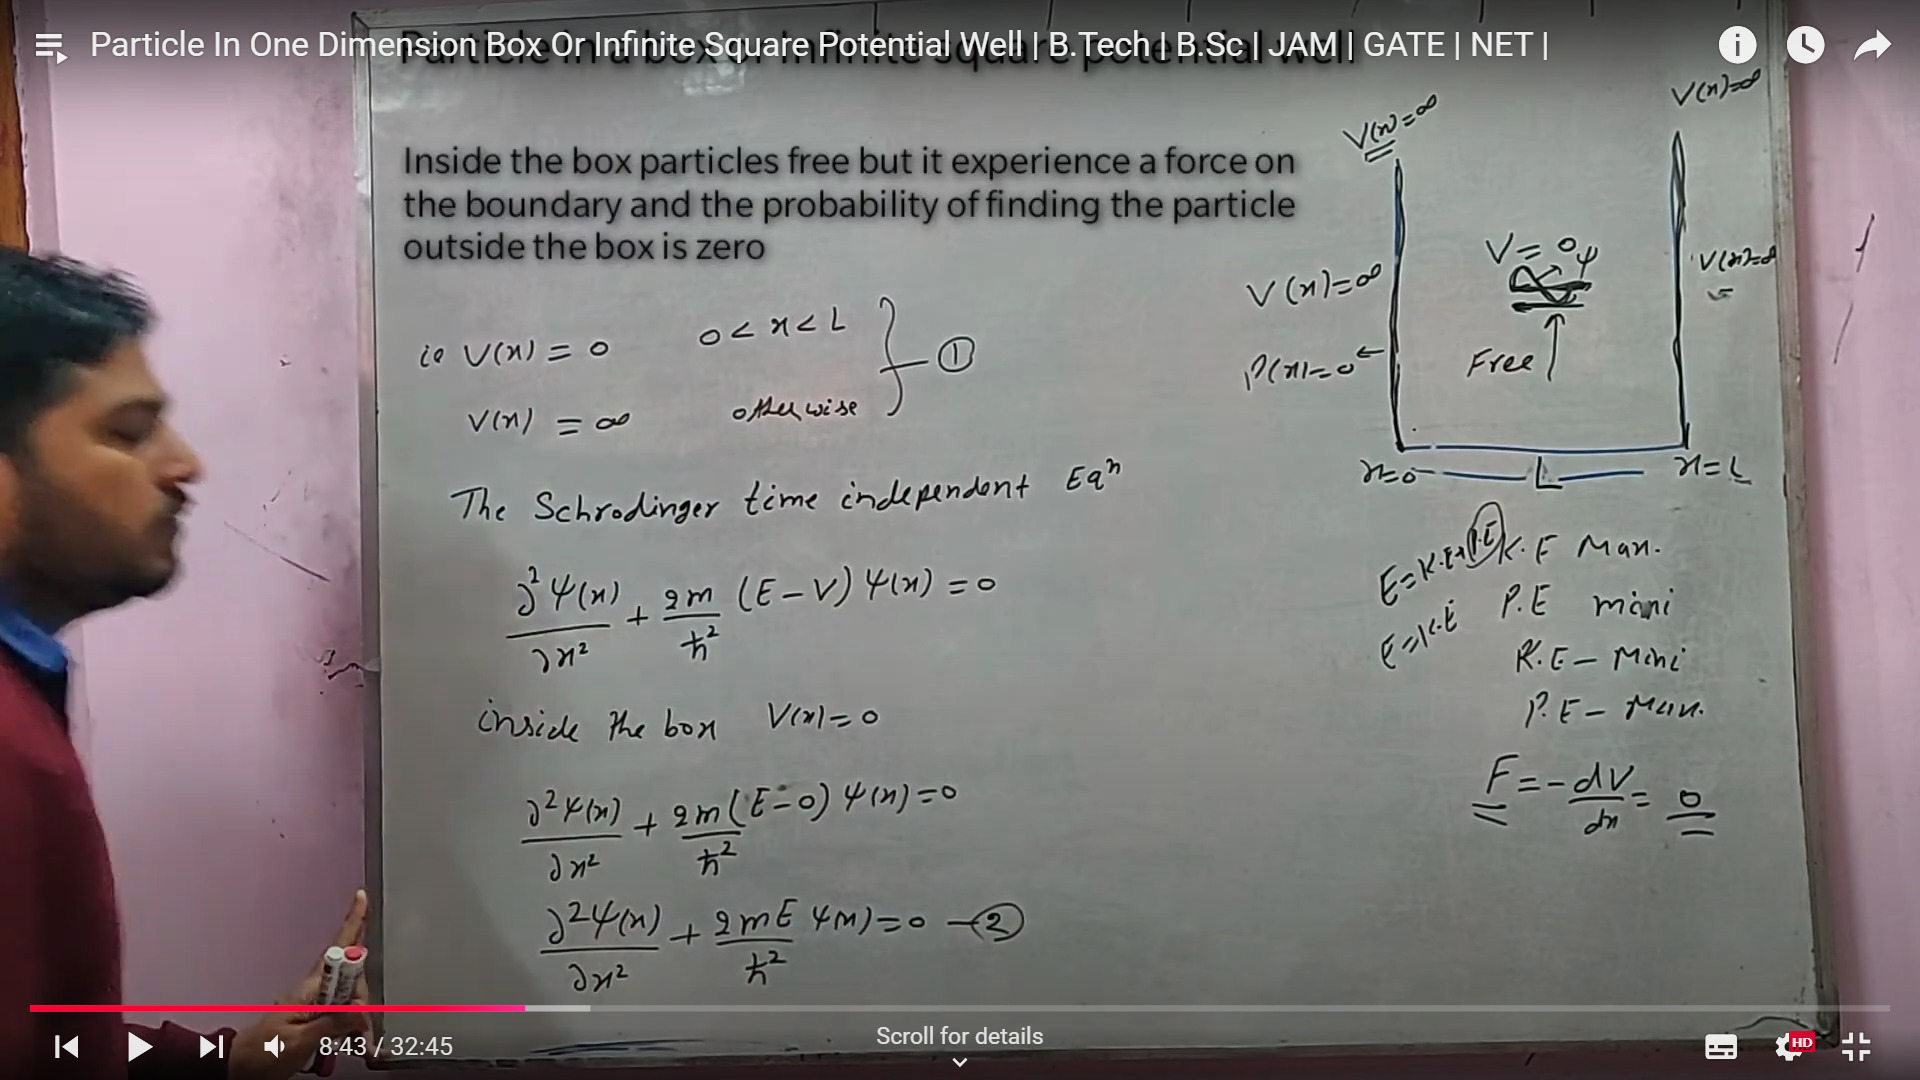 Particle In One Dimension Box Or Infinite Square Potential Well | B.Tech | B.Sc | JAM | GATE | NET |
Particle in a box or infinite square potential well
Inside the box particles free but it experience a force on
the boundary and the probability of finding the particle
outside the box is zero
ie V(x) = 0 0 < x < L
V(x) = ∞ otherwise
①
The Schrodinger time independent Eqⁿ
∂²ψ(x)/∂x² + 2m/ħ² (E – V) ψ(x) = 0
inside the box V(x) = 0
∂²ψ(x)/∂x² + 2m/ħ² (E – 0) ψ(x) = 0
∂²ψ(x)/∂x² + 2mE/ħ² ψ(x) = 0 – ②
V(x) = ∞
V(x) = ∞
V = 0 ψ
V(x) = ∞
V(x) = ∞
P(x) = 0 ←
Free
x = 0 L x = L
E = K.E + P.E
K.E Max.
E = K.E
P.E mini
K.E – Mini
P.E – Max.
F = – dV/dx = 0
8:43 / 32:45
Scroll for details
HD